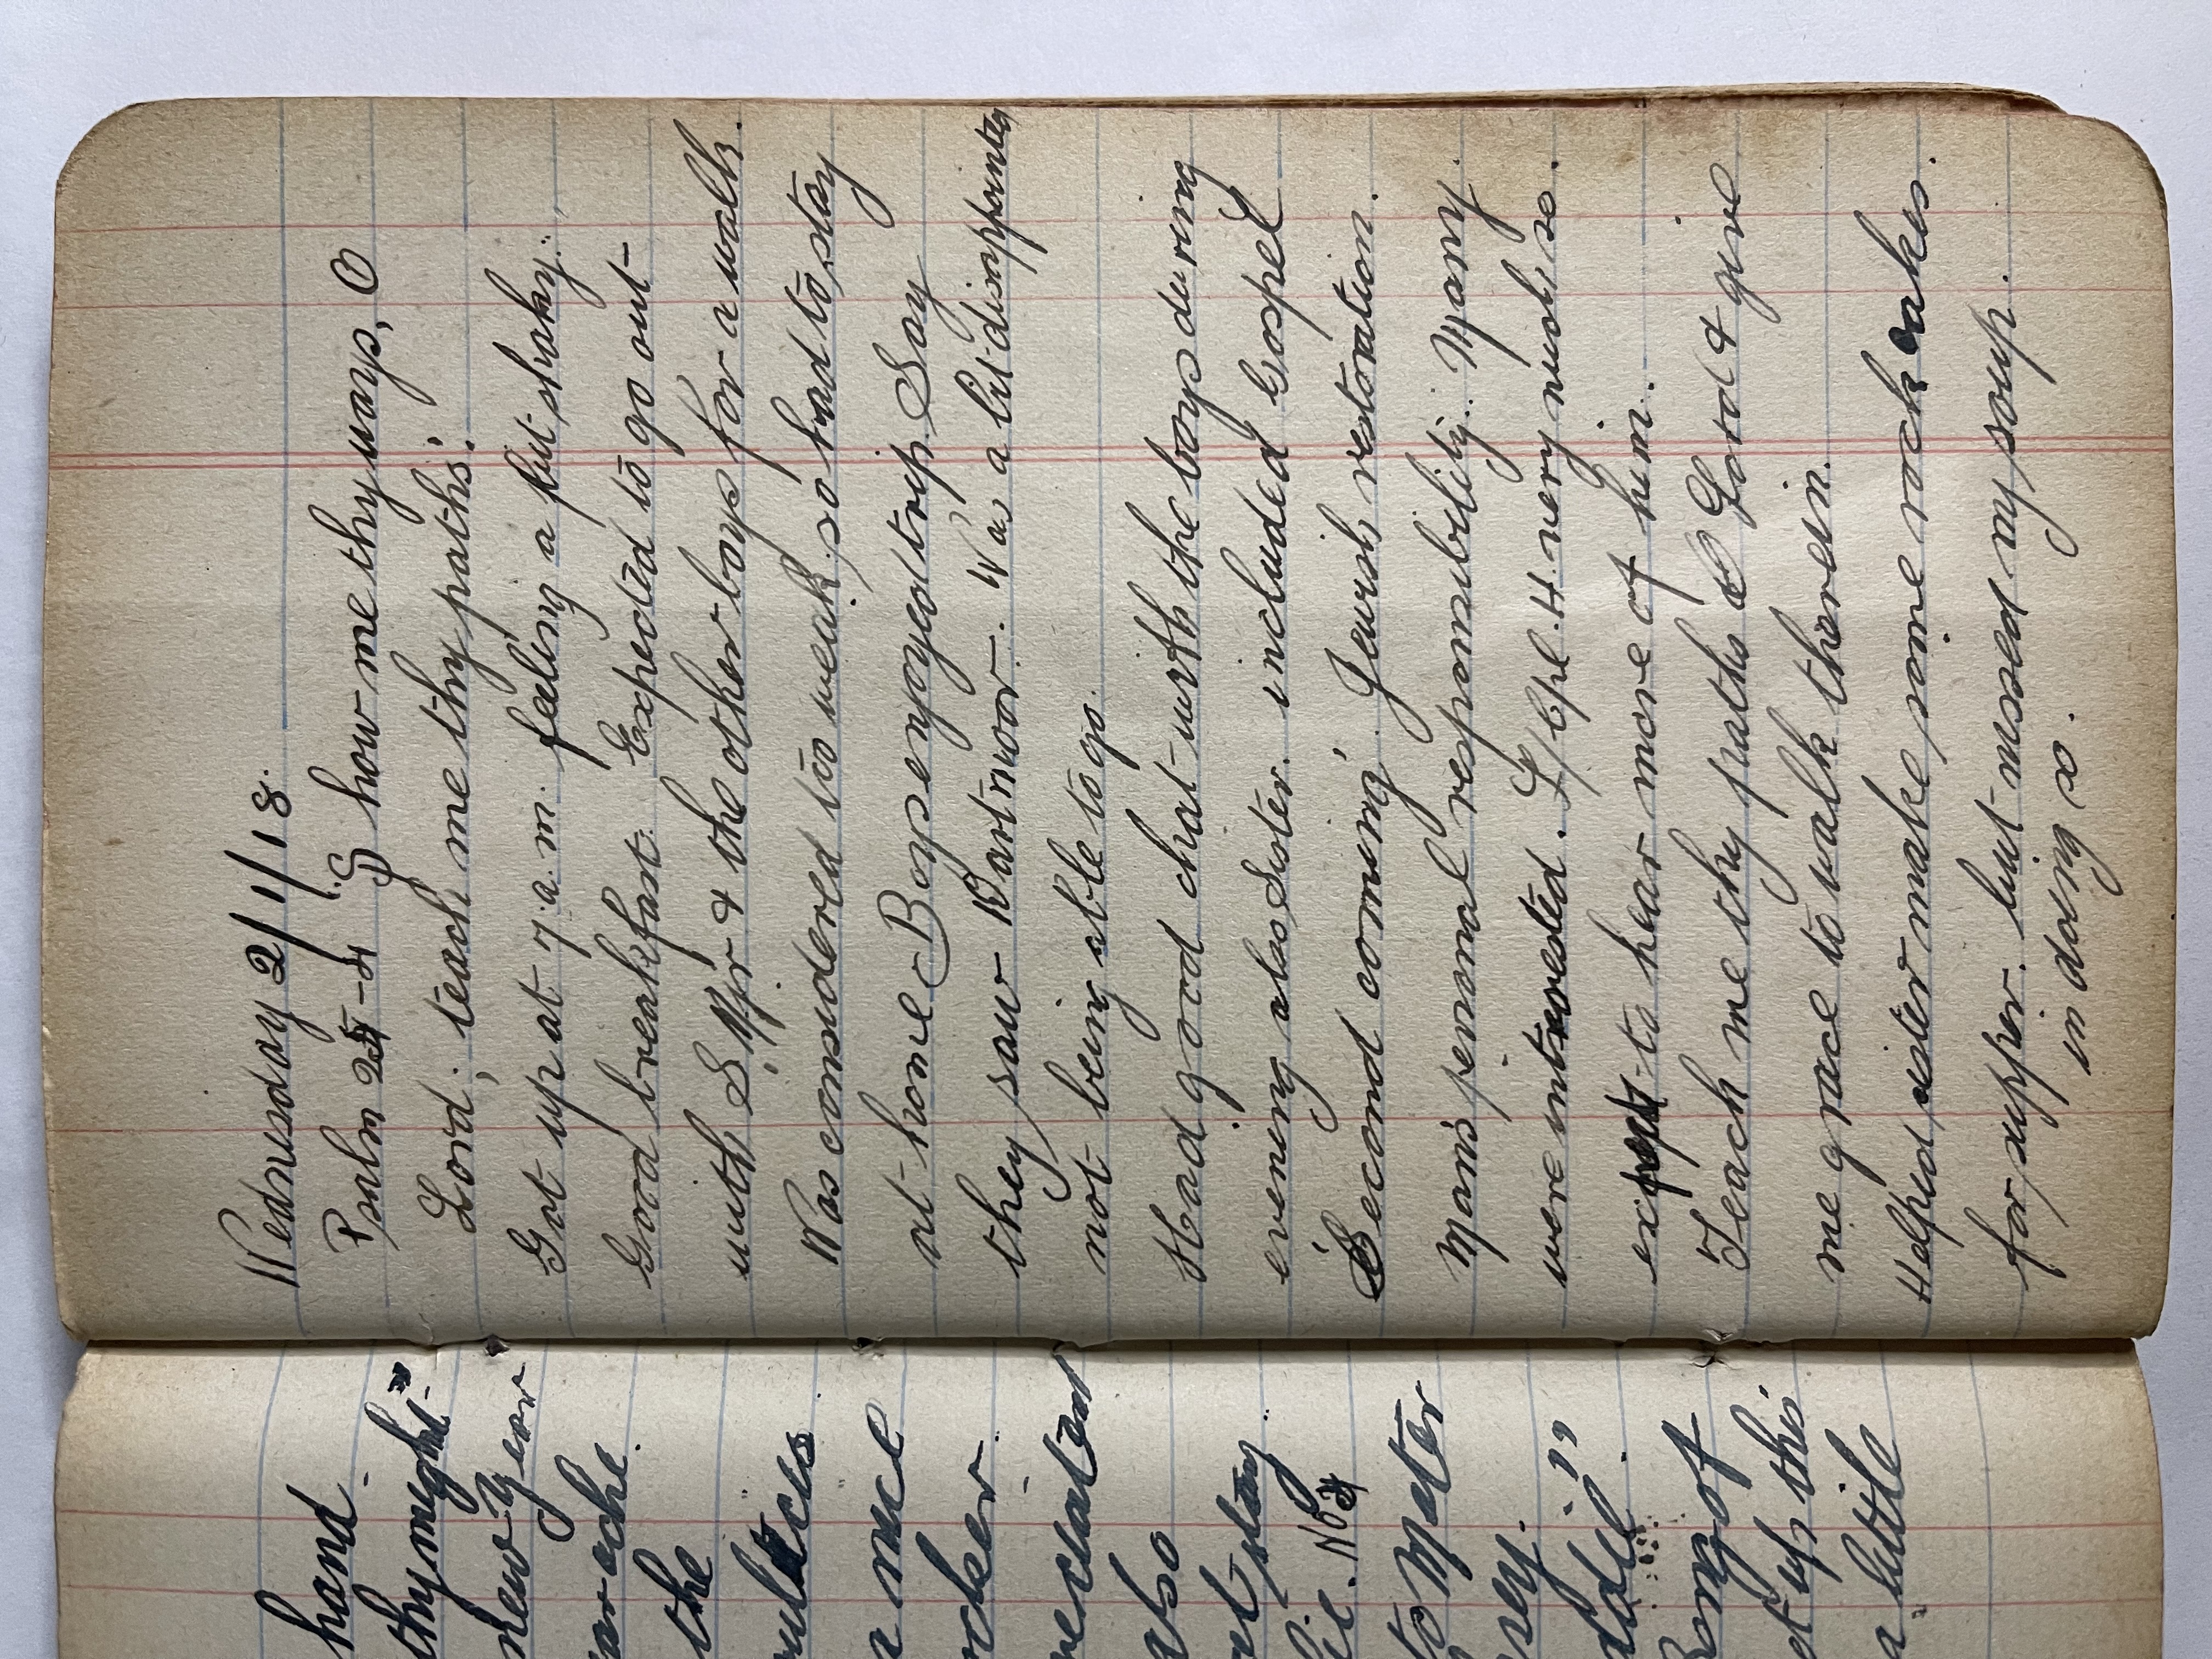 Wednesday 2/1/18.
Psalm 25-4 "Show me thy ways, O
Lord; teach me thy paths."
Got up at 7 a.m. feeling a bit shaky.
Good breakfast. Expected to go out
with S. Mjr & the other boys for a walk.
Was considered too weak, so had to stay
at home. Boys enjoyed trip. Say
they saw Dartmoor. Was a bit disappointed
not being able to go.
Had good chat with the boys during
evening also Sister. included Gospel
Second coming. Jewish restoration.
Man's personal responsibility. Many
were interested. L/Cpl. H very much so.
expect to hear more of him.
Teach me thy paths O Lord & give
me grace to walk therein.
Helped sister make some rock cakes
for supper. but missed my soup.
in doing so.
hand
thy might"
new year
the
a nice
also
stay
to Mater
a little